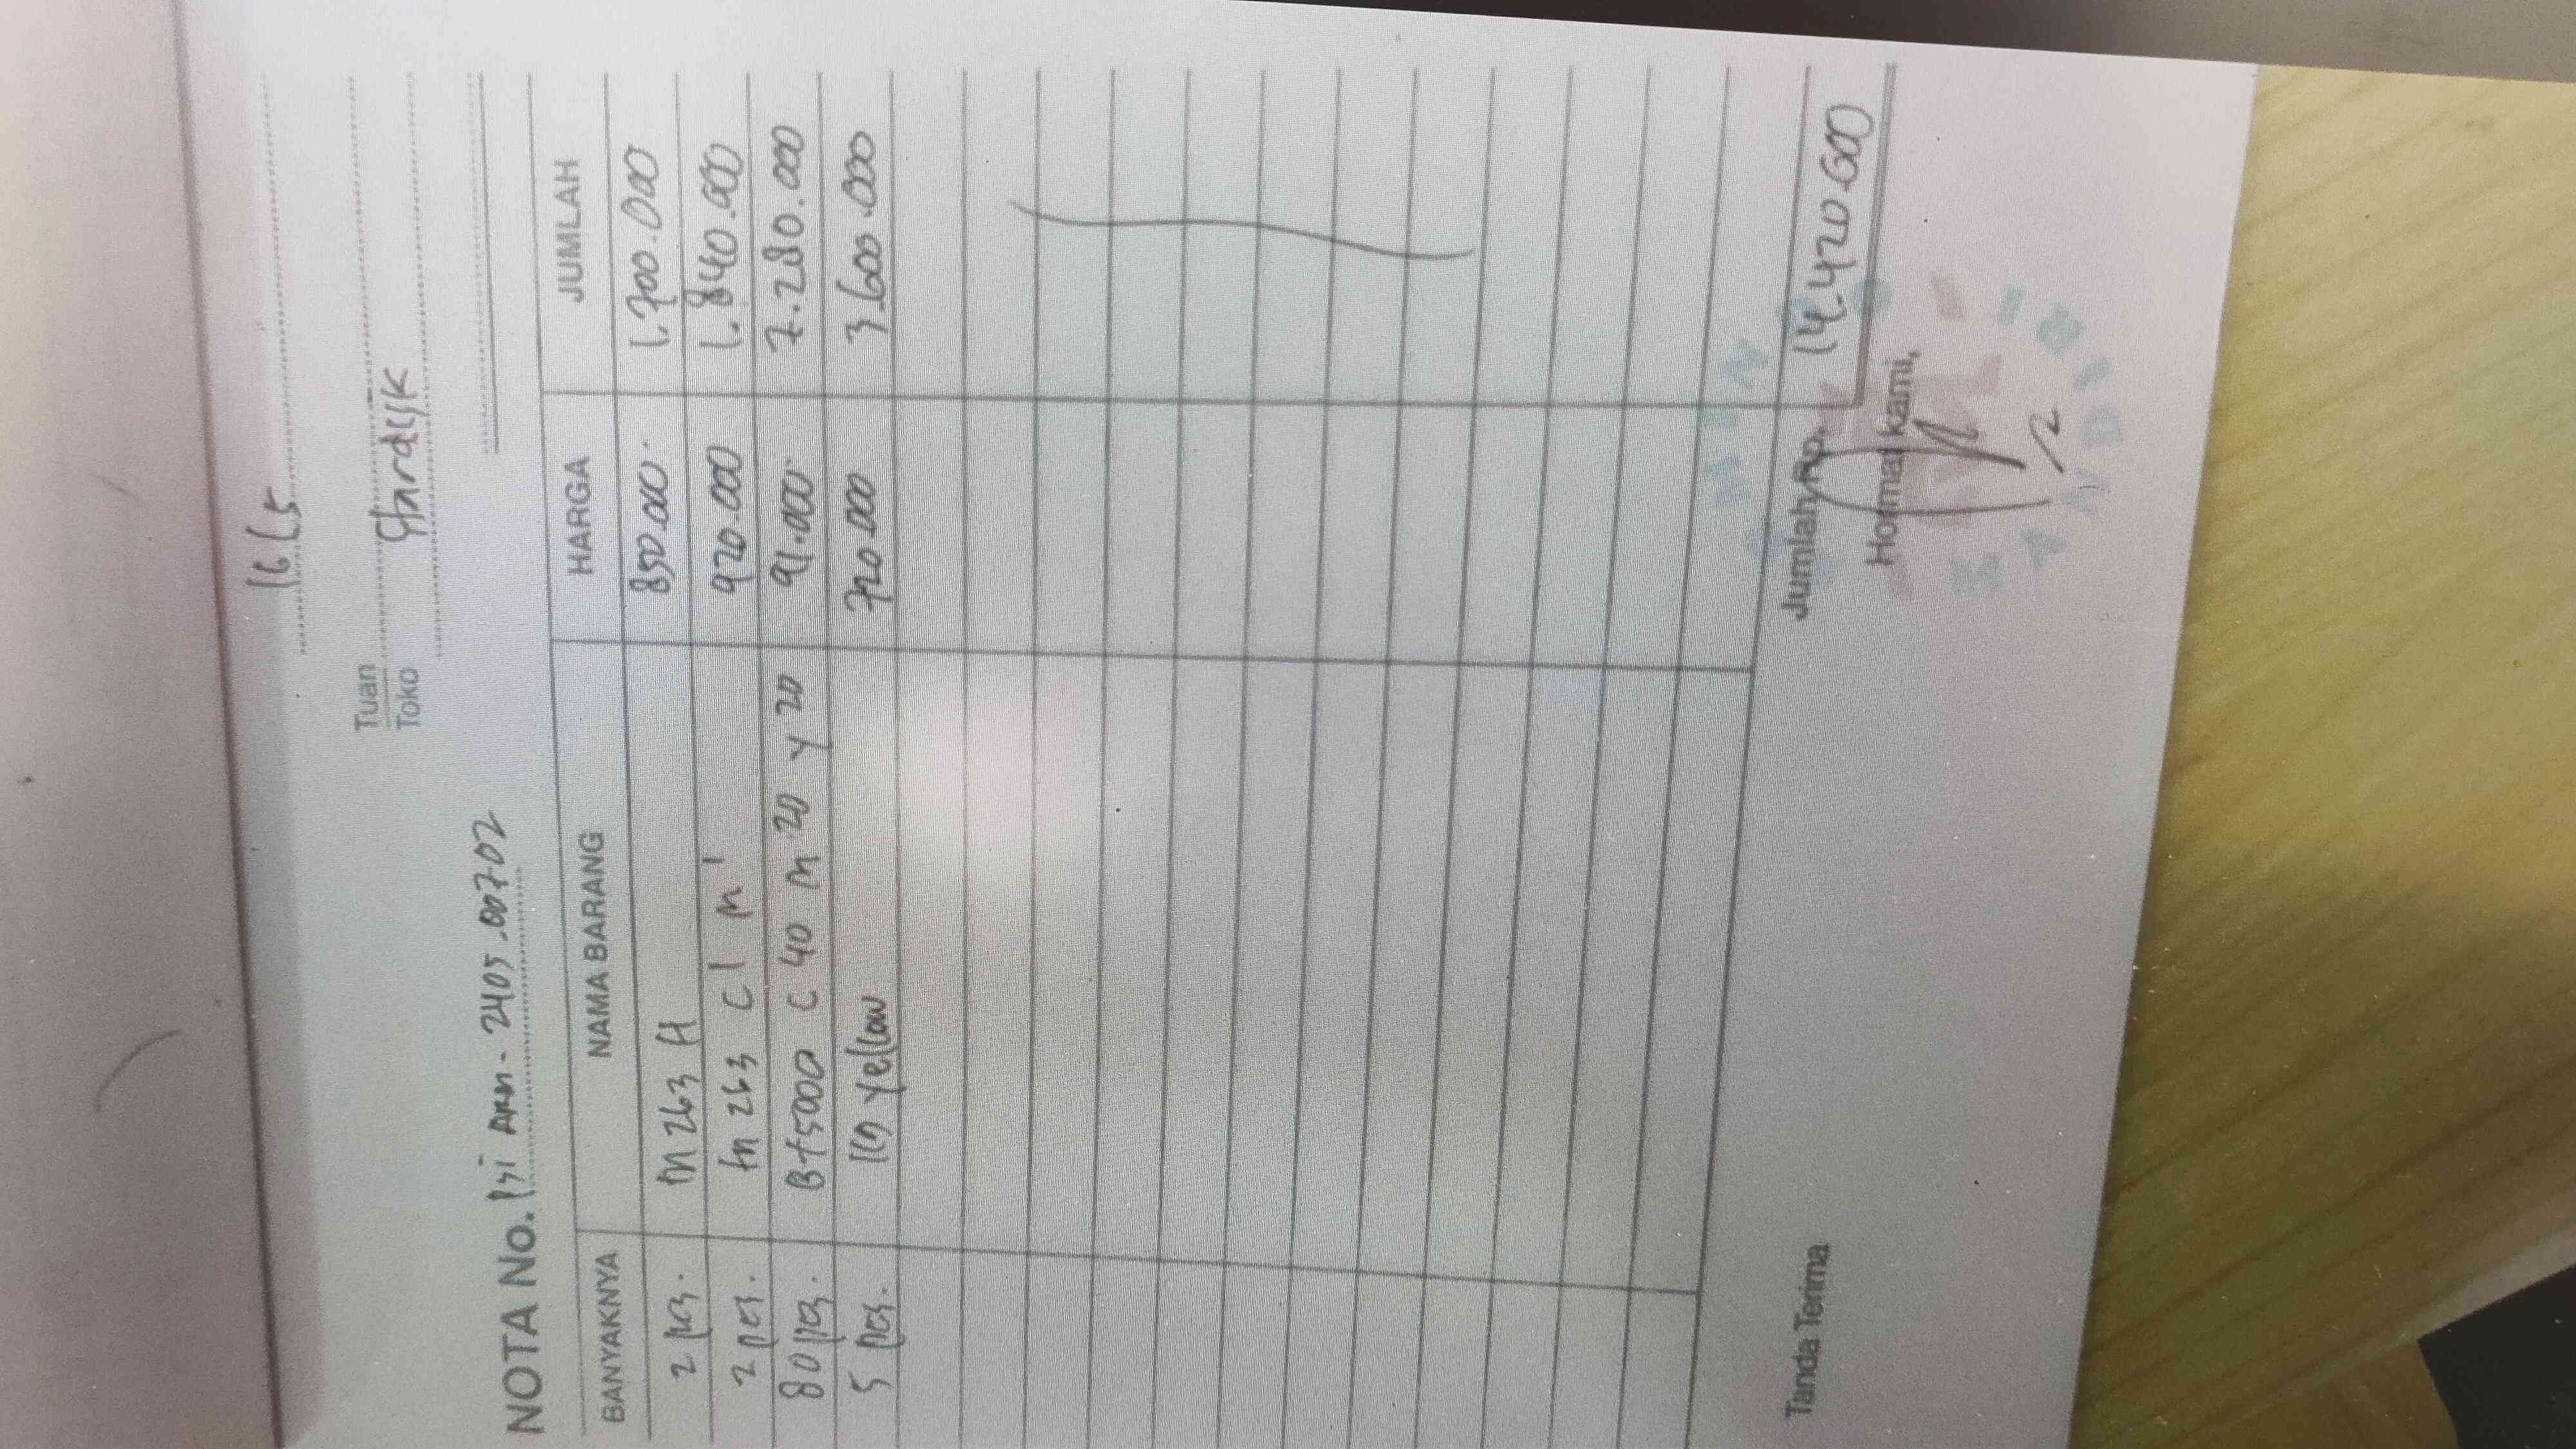 16 / 5
Tuan
Toko
Stardesk
NOTA No. 2405.00702
BANYAKNYA NAMA BARANG HARGA JUMLAH
2 pcs. M 263 H 850.000. 1.700.000
2 pcs. M 263 C 1 M 1 920.000 1.840.000
80 pcs. Bt5000 C 40 M 20 Y 20 91.000. 7.280.000
5 pcs. Yellow 720.000 3.600.000
Tanda Terima Jumlah Rp. 14.420.000
Hormat kami,